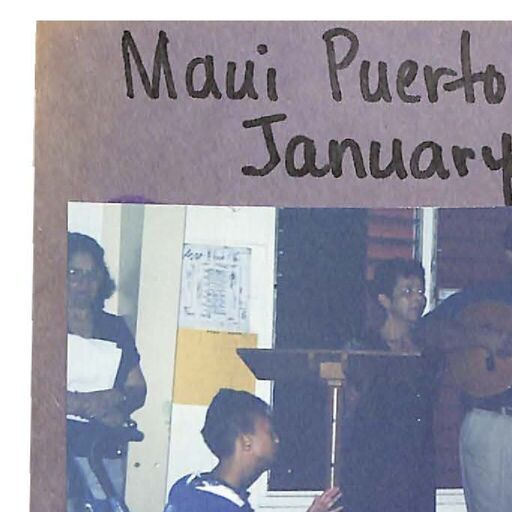 Maui Puerto
January